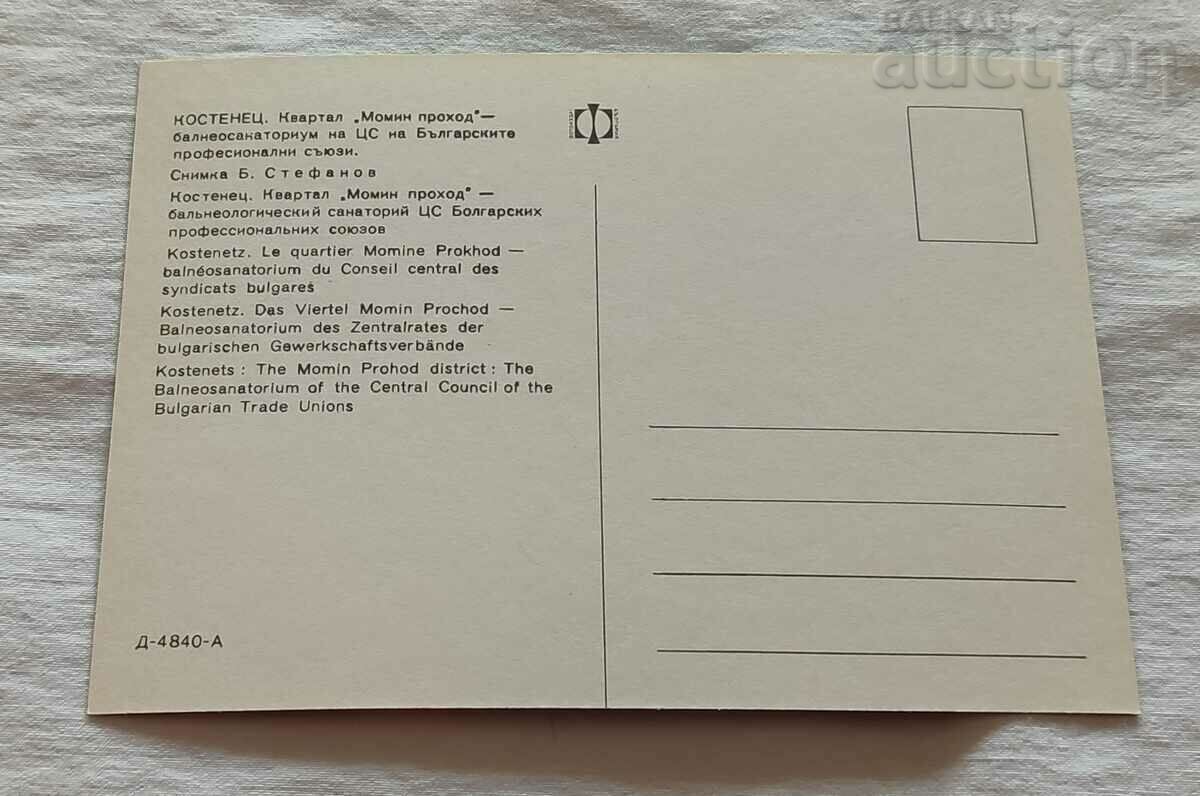 BALKAN
auction
КОСТЕНЕЦ. Квартал „Момин проход" —
балнеосанаториум на ЦС на Българските
професионални съюзи.
Снимка Б. Стефанов
Костенец. Квартал „Момин проход" —
бальнеологический санаторий ЦС Болгарских
профессиональних союзов
Kostenetz. Le quartier Momine Prokhod —
balnéosanatorium du Conseil central des
syndicats bulgares
Kostenetz. Das Viertel Momin Prochod —
Balneosanatorium des Zentralrates der
bulgarischen Gewerkschaftsverbände
Kostenets : The Momin Prohod district : The
Balneosanatorium of the Central Council of the
Bulgarian Trade Unions
Д-4840-А